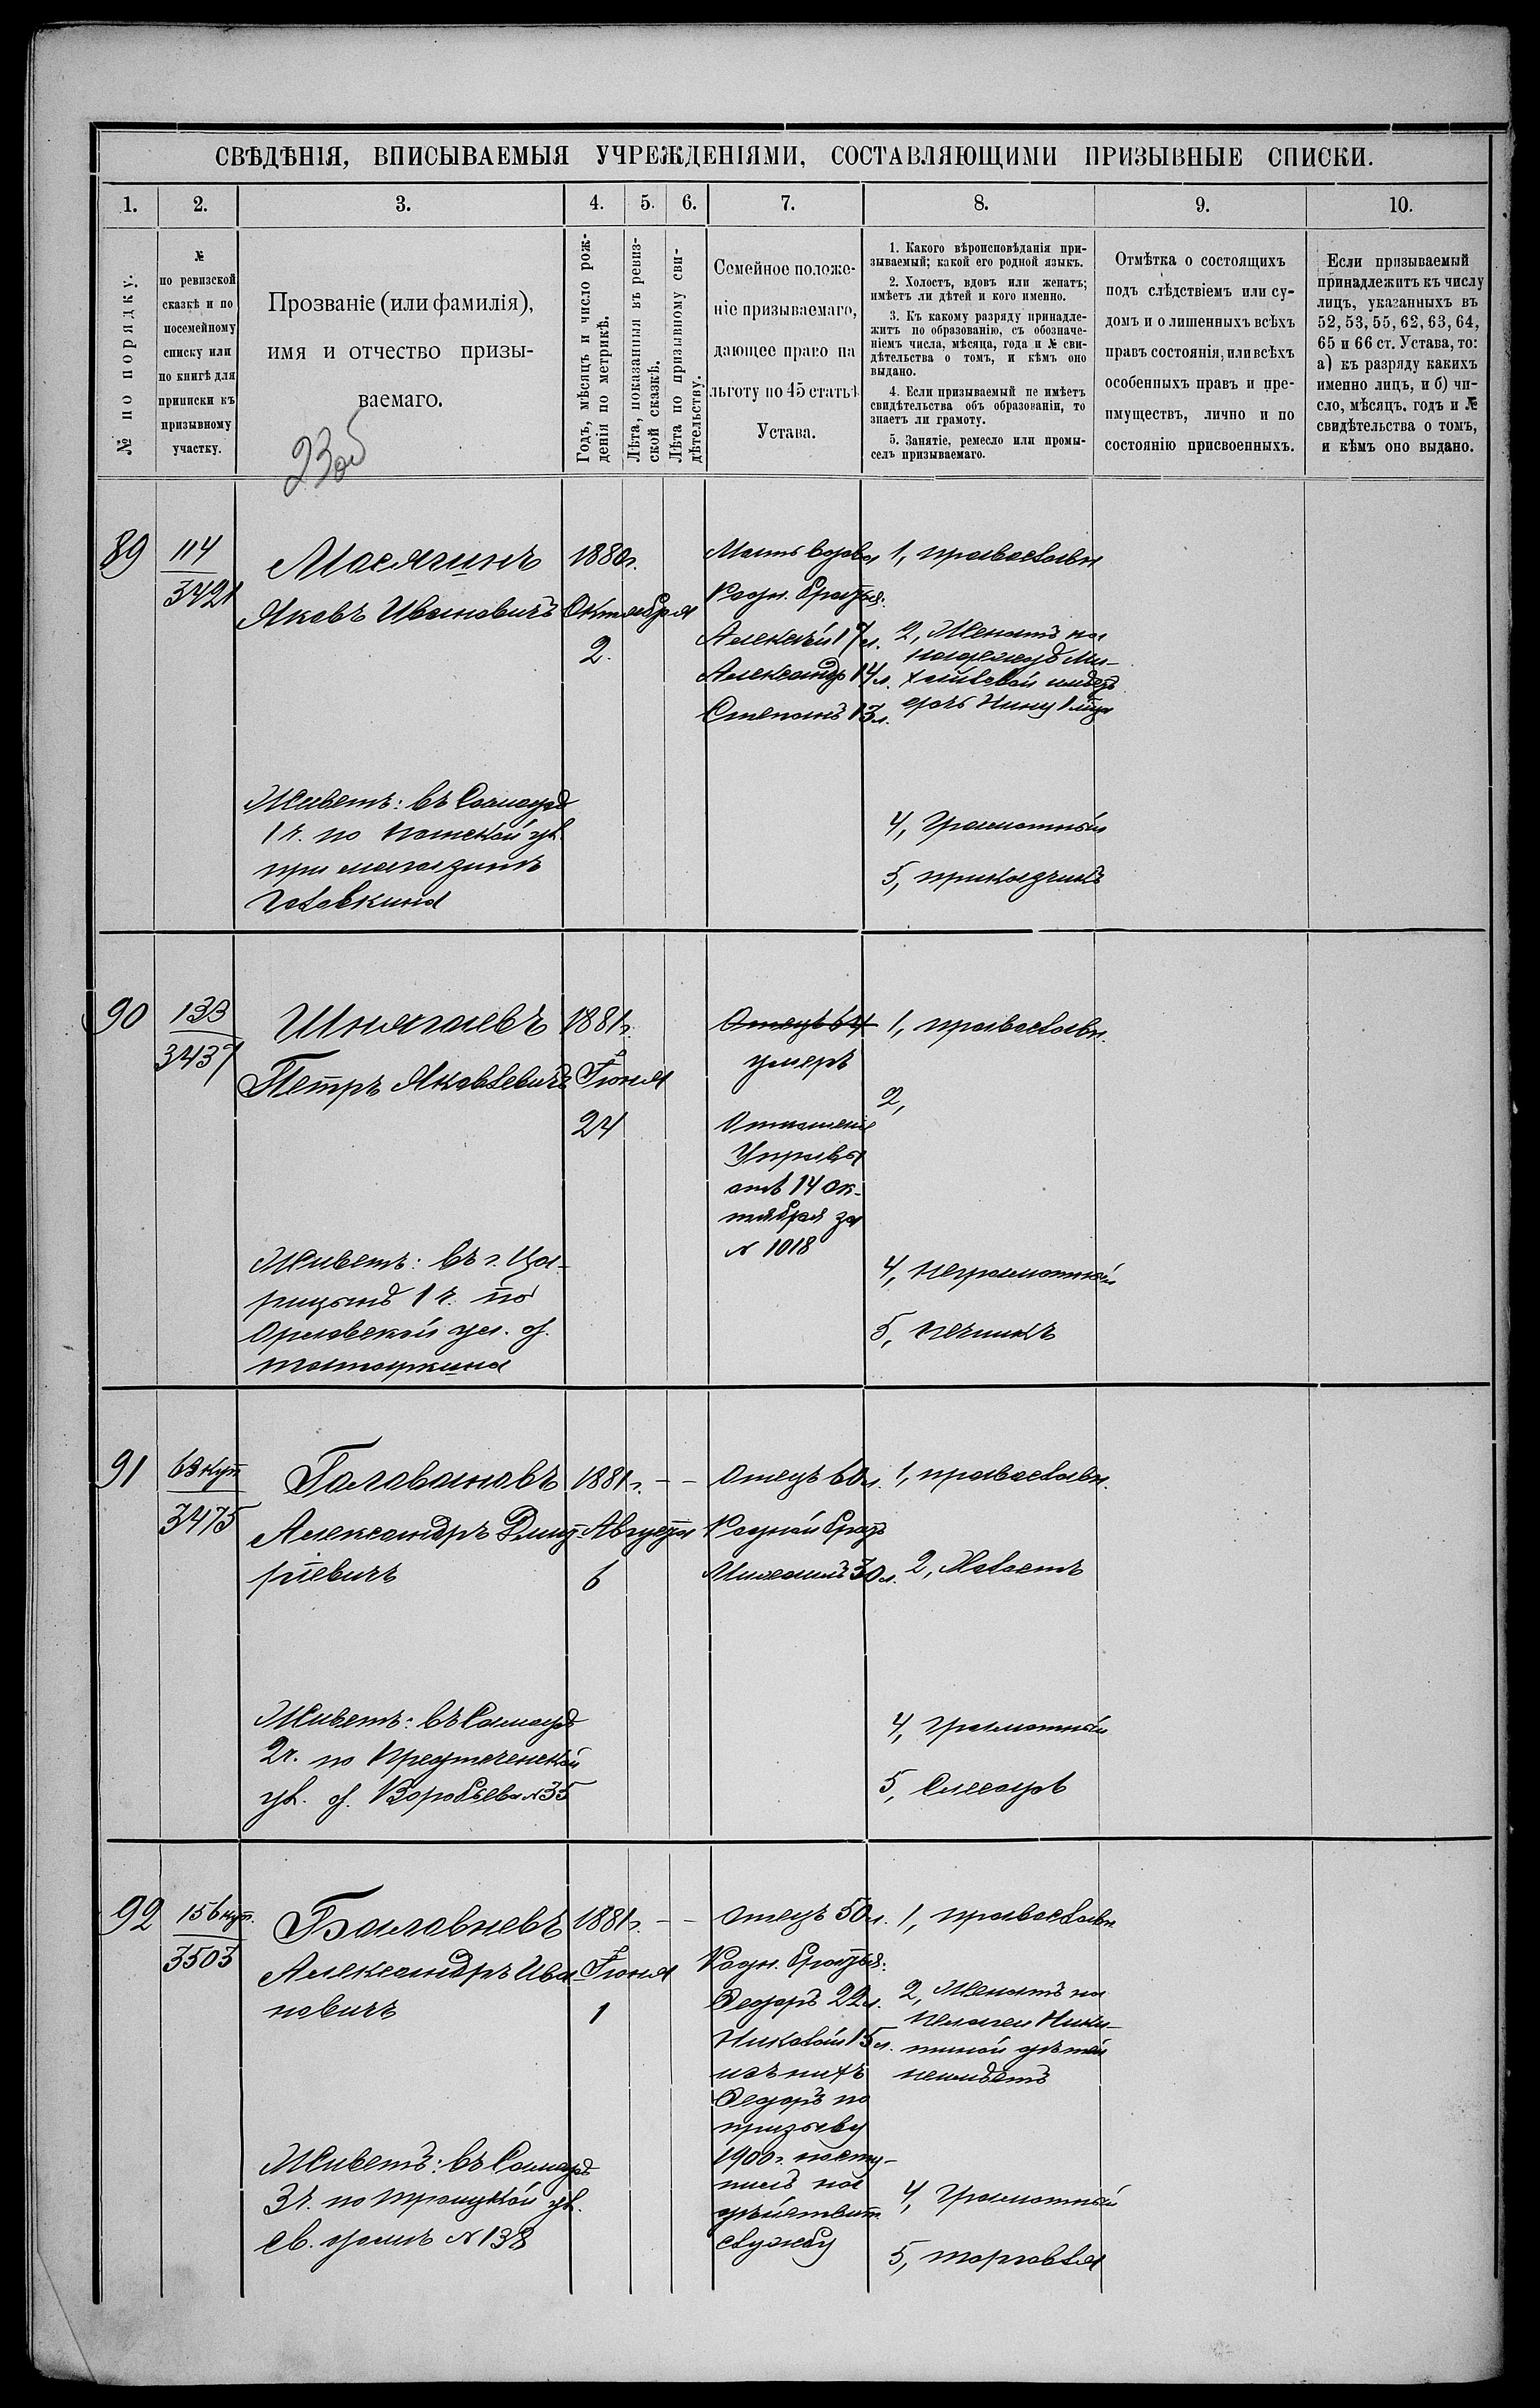 СВѢДѢНІЯ, ВПИСЫВАЕМЫЯ УЧРЕЖДЕНІЯМИ, СОСТАВЛЯЮЩИМИ ПРИЗЫВНЫЕ СПИСКИ.
1. 2. 3. 4. 5. 6. 7. 8. 9. 10.
№ по порядку.
№
по ревизской
сказкѣ и по
посемейному
списку или
по книгѣ для
приписки къ
призывному
участку.
Прозваніе (или фамилія),
имя и отчество призы-
ваемаго.
23об
Годъ, мѣсяцъ и число рож-
денія по метрикѣ.
Лѣта, показанныя въ ревиз-
ской сказкѣ.
Лѣта по призывному сви-
дѣтельству.
Семейное положе-
ніе призываемаго,
дающее право на
льготу по 45 статьѣ
Устава.
1. Какого вѣроисповѣданія при-
зываемый; какой его родной языкъ.
2. Холостъ, вдовъ или женатъ;
имѣетъ ли дѣтей и кого именно.
3. Къ какому разряду принадле-
житъ по образованію, съ обозначе-
ніемъ числа, мѣсяца, года и № сви-
дѣтельства о томъ, и кѣмъ оно
выдано.
4. Если призываемый не имѣетъ
свидѣтельства объ образованіи, то
знаетъ ли грамоту.
5. Занятіе, ремесло или промы-
селъ призываемаго.
Отмѣтка о состоящихъ
подъ слѣдствіемъ или су-
домъ и о лишенныхъ всѣхъ
правъ состоянія, или всѣхъ
особенныхъ правъ и пре-
имуществъ, лично и по
состоянію присвоенныхъ.
Если призываемый
принадлежитъ къ числу
лицъ, указанныхъ въ
52, 53, 55, 62, 63, 64,
65 и 66 ст. Устава, то:
а) къ разряду какихъ
именно лицъ, и б) чи-
сло, мѣсяцъ, годъ и №
свидѣтельства о томъ,
и кѣмъ оно выдано.
89
114
3421
Масягинъ
Яковъ Ивановичъ
Живетъ: въ Самарѣ
1 ч. по Панской ул.
при магазинѣ
Головкина
1880г.
Октября
2.
Мать вдова
Родн. братья:
Алексѣй 17л.
Александр 14л.
Степанъ 13л.
1, православн
2, Женатъ на
Надеждѣ Ми-
хайловой имѣетъ
дочь Нину 1 мца
4, Грамотный
5, приказчикъ
90
133
3437
Инягаевъ
Петръ Яковлевичъ
Живетъ: въ г. Ца-
рицынѣ 1 ч. по
Орловской ул. д.
1881г.
Іюня
24
Отецъ 64
умеръ
Отношеніе
Управы
отъ 14 Ок-
тября за
№ 1018
1, православн.
2,
4, неграмотный
5, печникъ
91
63 куп
3475
Головановъ
Александръ Дмит-
ріевичъ
Живетъ: въ Самарѣ
2ч. по Предтеченской
ул. д. Воробьева № 35
1881г. - -
Августа
6
Отецъ 60л.
Родной братъ
Михаилъ 30л.
1, православн.
2, Холостъ
4, грамотный
5, Слесарь
92
156 куп.
3503
Баловневъ
Александръ Ива-
новичъ
Живетъ: въ Самарѣ
3ч. по Троицкой ул.
св. домъ № 138
1881г. - -
Іюня
1
Отецъ 50л.
Родн. братья:
Федоръ 22л.
Николай 15л.
изъ нихъ
Федоръ по
призыву
1900г. посту-
пилъ на
дѣйствит.
службу
1, православн
2, Женатъ на
Пелагеи Ники-
тиной дѣтей
неимѣетъ
4, Грамотный
5, торговля